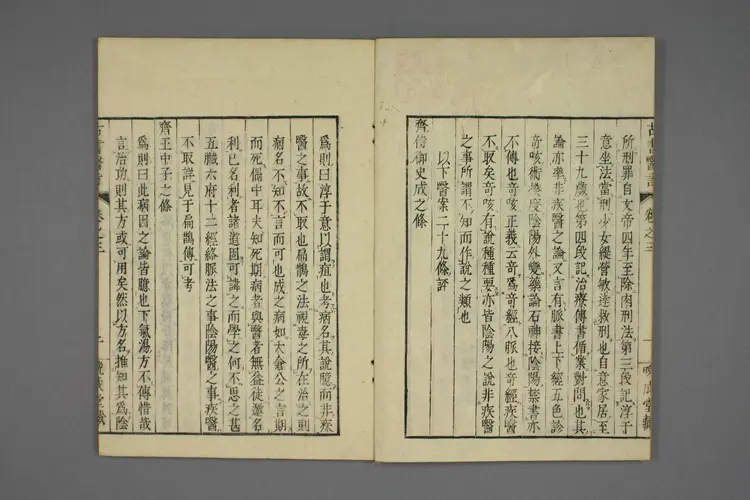 所刑罪自文帝四年至除肉刑法第三段記淳于
意坐法當刑少女緹縈敏達救刑也自意家居至
三十九歲也第四段記治療傳書循業對問也其
論亦率非疾醫之論又言有脈書上下經五色診
奇咳術揆度陰陽外變藥論石神接陰陽禁書亦
不傳也奇咳正義云奇爲奇經八脈也奇經疾醫
不取矣奇咳有說種種要亦皆陰陽之說非疾醫
之事所謂不知而作說之類也
以下醫案二十九條評
齊侍御史成之條
爲則曰淳于意以謂疽也考病名其說臆而非疾
醫之事故不取也扁鵲之法視毒之所在治之則
病名不知不言而可也成之病如太倉公之言期
而死偶中耳夫知死期病者與醫者無益徒還名
利已名利者諸道固可諱之而學之何不思之甚
五臟六府十二經絡脈法之事陰陽醫之事疾醫
不取詳見于扁鵲傳可考
齊王中子之條
爲則曰此病因之論皆臆也下氣湯方不傳惜哉
言治功則其方或可用矣然以方名推知其爲陰
古書醫言
卷之三
二